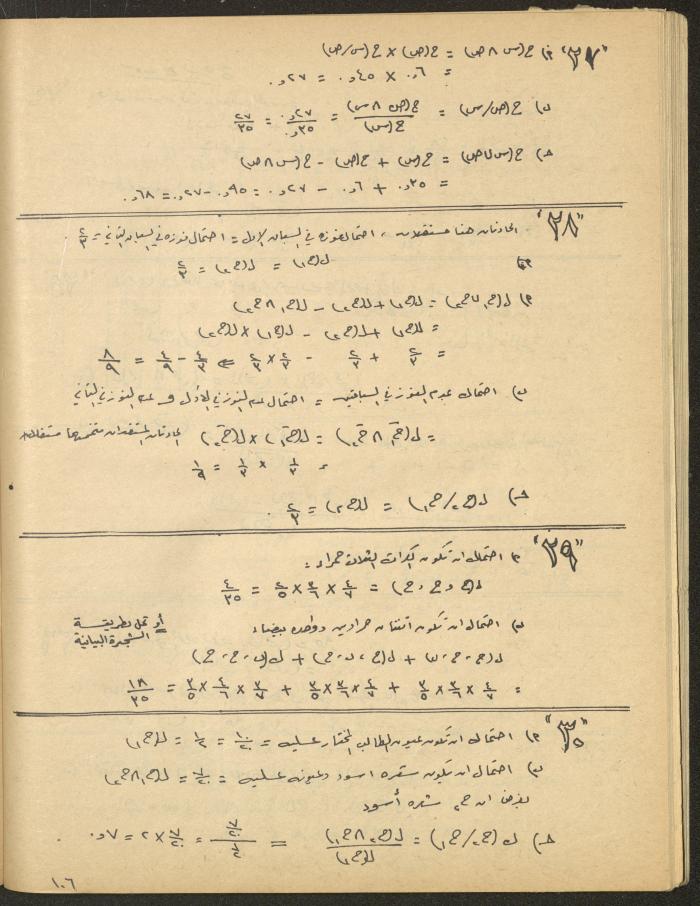 "٢٧" P) ح(س ∧ ص) = ح(ص) × ح(س/ص)
= ٦و. × ٤٥و. = ٢٧و.
ب) ح(ص/س) = ح(ص ∧ س)/ح(س) = ٢٧و./٣٥و. = ٢٧/٣٥
ح) ح(س ∪ ص) = ح(س) + ح(ص) - ح(س ∧ ص)
= ٣٥و. + ٦و. - ٢٧و. = ٩٥و. - ٢٧و. = ٦٨و.
"٢٨" الحادثان هنا مستقلان ، احتمال فوزه في السباق الأول = احتمال فوزه في السباق الثاني = ٢/٣
ل(ح١) = ل(ح٢) = ٢/٣
P) ل(ح١ ∪ ح٢) = ل(ح١) + ل(ح٢) - ل(ح١ ∧ ح٢)
= ل(ح١) + ل(ح٢) - ل(ح١) × ل(ح٢)
= ٢/٣ + ٢/٣ - ٢/٣ × ٢/٣ ⇐ ٤/٣ - ٤/٩ = ٨/٩
ب) احتمال عدم الفوز في السباقين = احتمال عدم الفوز في الأول و عدم الفوز في الثاني
= ل(ح̄١ ∧ ح̄٢) = ل(ح̄١) × ل(ح̄٢) الحادثان المستقلان متممتهما مستقلة
= ١/٣ × ١/٣ = ١/٩
ح) ل(ح٢/ح١) = ل(ح٢) = ٢/٣ .
"٢٩" P احتمال ان تكون الكرات الثلاث حمراء :
ل(ح و ح و ح) = ٤/٧ × ٣/٦ × ٢/٥ = ٤/٣٥
ب) احتمال ان تكون اثنتان حمراوين وواحدة بيضاء
أو تحل بطريقة
الشجرة البيانية
ل(ح، ح، ب) + ل(ح، ب، ح) + ل(ب، ح، ح)
= ٤/٧ × ٣/٦ × ٣/٥ + ٤/٧ × ٣/٦ × ٣/٥ + ٣/٧ × ٤/٦ × ٣/٥ = ١٨/٣٥
"٣٠" P) احتمال ان تكون عيون الطالب المختار عسلية = ١٠/٢٠ = ١/٢ = ل(ح١)
ب) احتمال ان يكون شعره اسود وعيونه عسلية = ٧/٢٠ = ل(ح١ ∧ ح٢)
بفرض ان ح٢ شعره أسود
ح) ل(ح٢/ح١) = ل(ح٢ ∧ ح١)/ل(ح١) = ٧/٢٠ / ١/٢ = ٧/٢٠ × ٢ = ٧و.
١٠٦